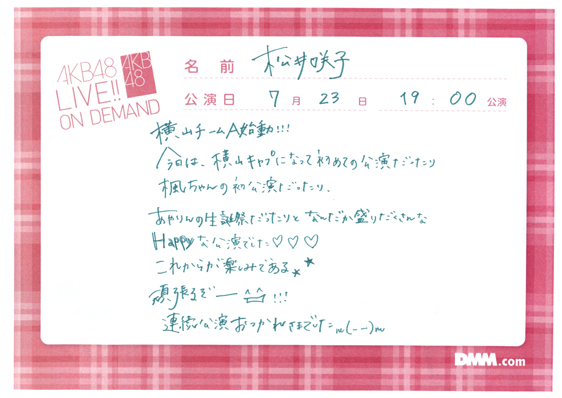 AKB48
LIVE!!
ON DEMAND
AKB
48
名 前 松井咲子
公演日 7 月 23 日 19 : 00 公演
横山チームA始動!!!
今日は、横山キャプになって初めての公演だったり
楓ちゃんの初公演だったり、
あやりんの生誕祭だったりと なんだか盛りだくさんな
Happyな公演でした♡♡♡
これからが楽しみである★★
頑張るぞー!!!
連続公演おつかれさまでしたm(--)m
DMM.com